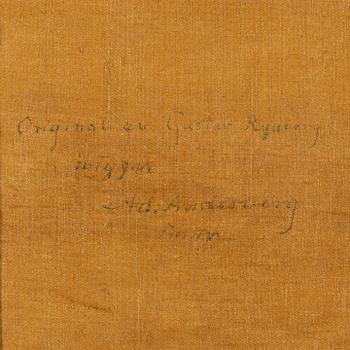 Original av Gustav Rydberg
intygar
Ad. Anderberg